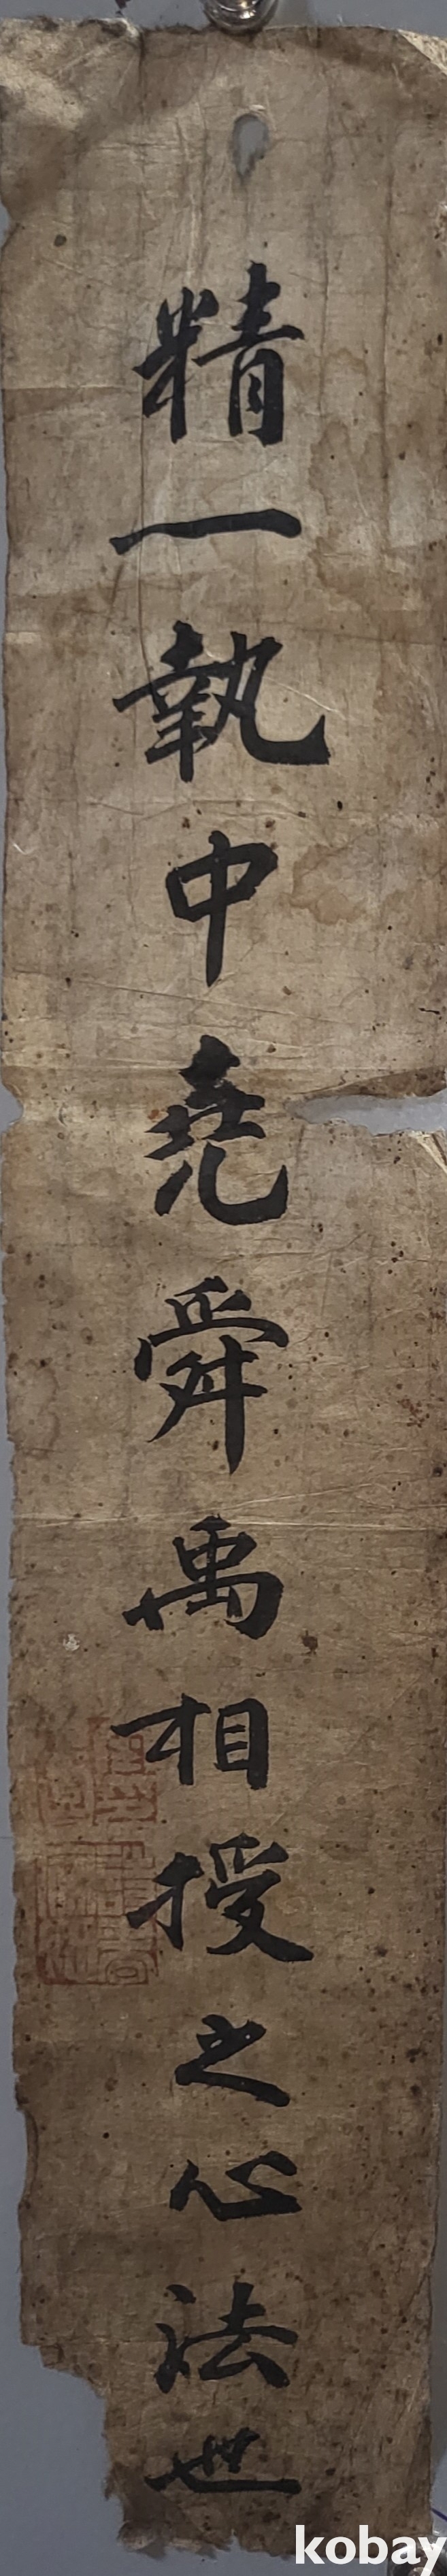 精一執中堯舜禹相授之心法也
kobay